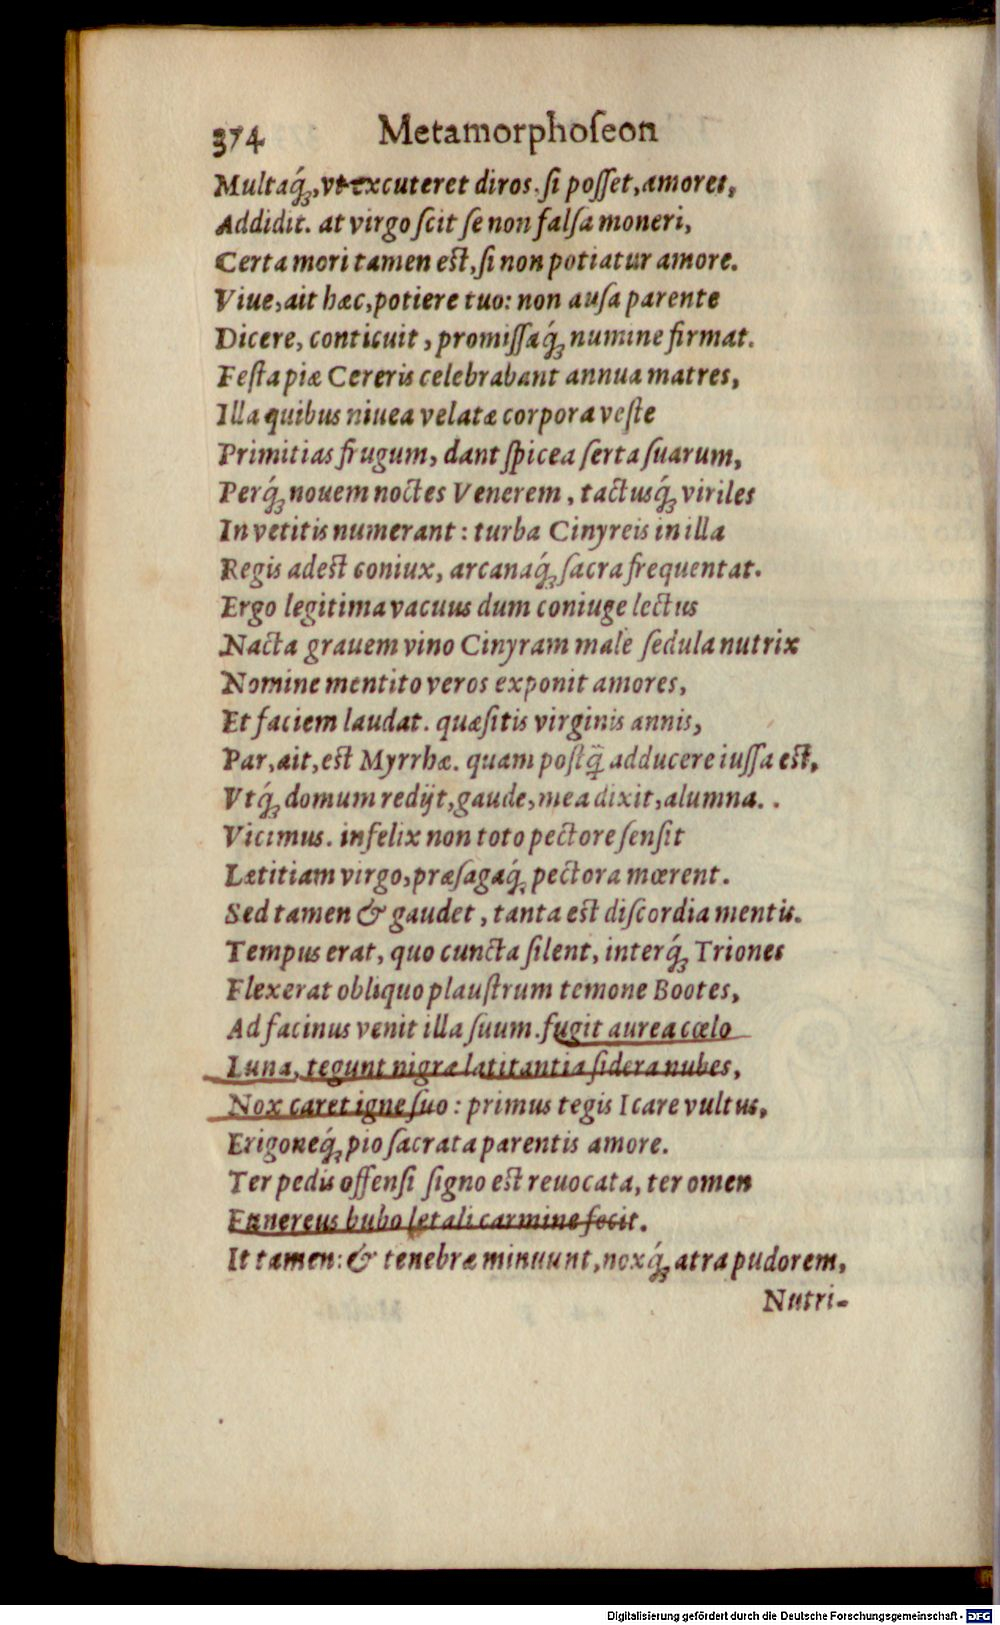 374 Metamorphoſeon
Multaq́ꝫ, vt excuteret diros, ſi poſſet, amores,
Addidit. at virgo ſcit ſe non falſa moneri,
Certa mori tamen est, ſi non potiatur amore.
Viue, ait hæc, potiere tuo: non auſa parente
Dicere, conticuit, promiſſaq́ꝫ numine firmat.
Feſta piæ Cereris celebrabant annua matres,
Illa quibus niuea velatæ corpora veſte
Primitias frugum, dant ſpicea ſerta ſuarum,
Perq́ꝫ nouem noctes Venerem, tactusq́ꝫ viriles
In vetitis numerant: turba Cinyreis in illa
Regis adest coniux, arcanaq́ꝫ ſacra frequentat.
Ergo legitima vacuus dum coniuge lectus
Nacta grauem vino Cinyram male ſedula nutrix
Nomine mentito veros exponit amores,
Et faciem laudat. quæſitis virginis annis,
Par, ait, est Myrrhæ. quam poſtq̃ adducere iuſſa est,
Vtq́ꝫ domum redijt, gaude, mea dixit, alumna. .
Vicimus. infelix non toto pectore ſenſit
Lætitiam virgo, præſagaq́ꝫ pectora mœrent.
Sed tamen & gaudet, tanta est diſcordia mentis.
Tempus erat, quo cuncta ſilent, interq́ꝫ Triones
Flexerat obliquo plauſtrum temone Bootes,
Ad facinus venit illa ſuum. fugit aurea cœlo
Luna, tegunt nigræ latitantia ſidera nubes,
Nox caret igne ſuo: primus tegis Icare vultus,
Erigoneq́ꝫ pio ſacrata parentis amore.
Ter pedis offenſi ſigno est reuocata, ter omen
Funereus bubo letali carmine fecit.
It tamen: & tenebræ minuunt, noxq́ꝫ atra pudorem,
Nutri-
Digitalisierung gefördert durch die Deutsche Forschungsgemeinschaft - DFG